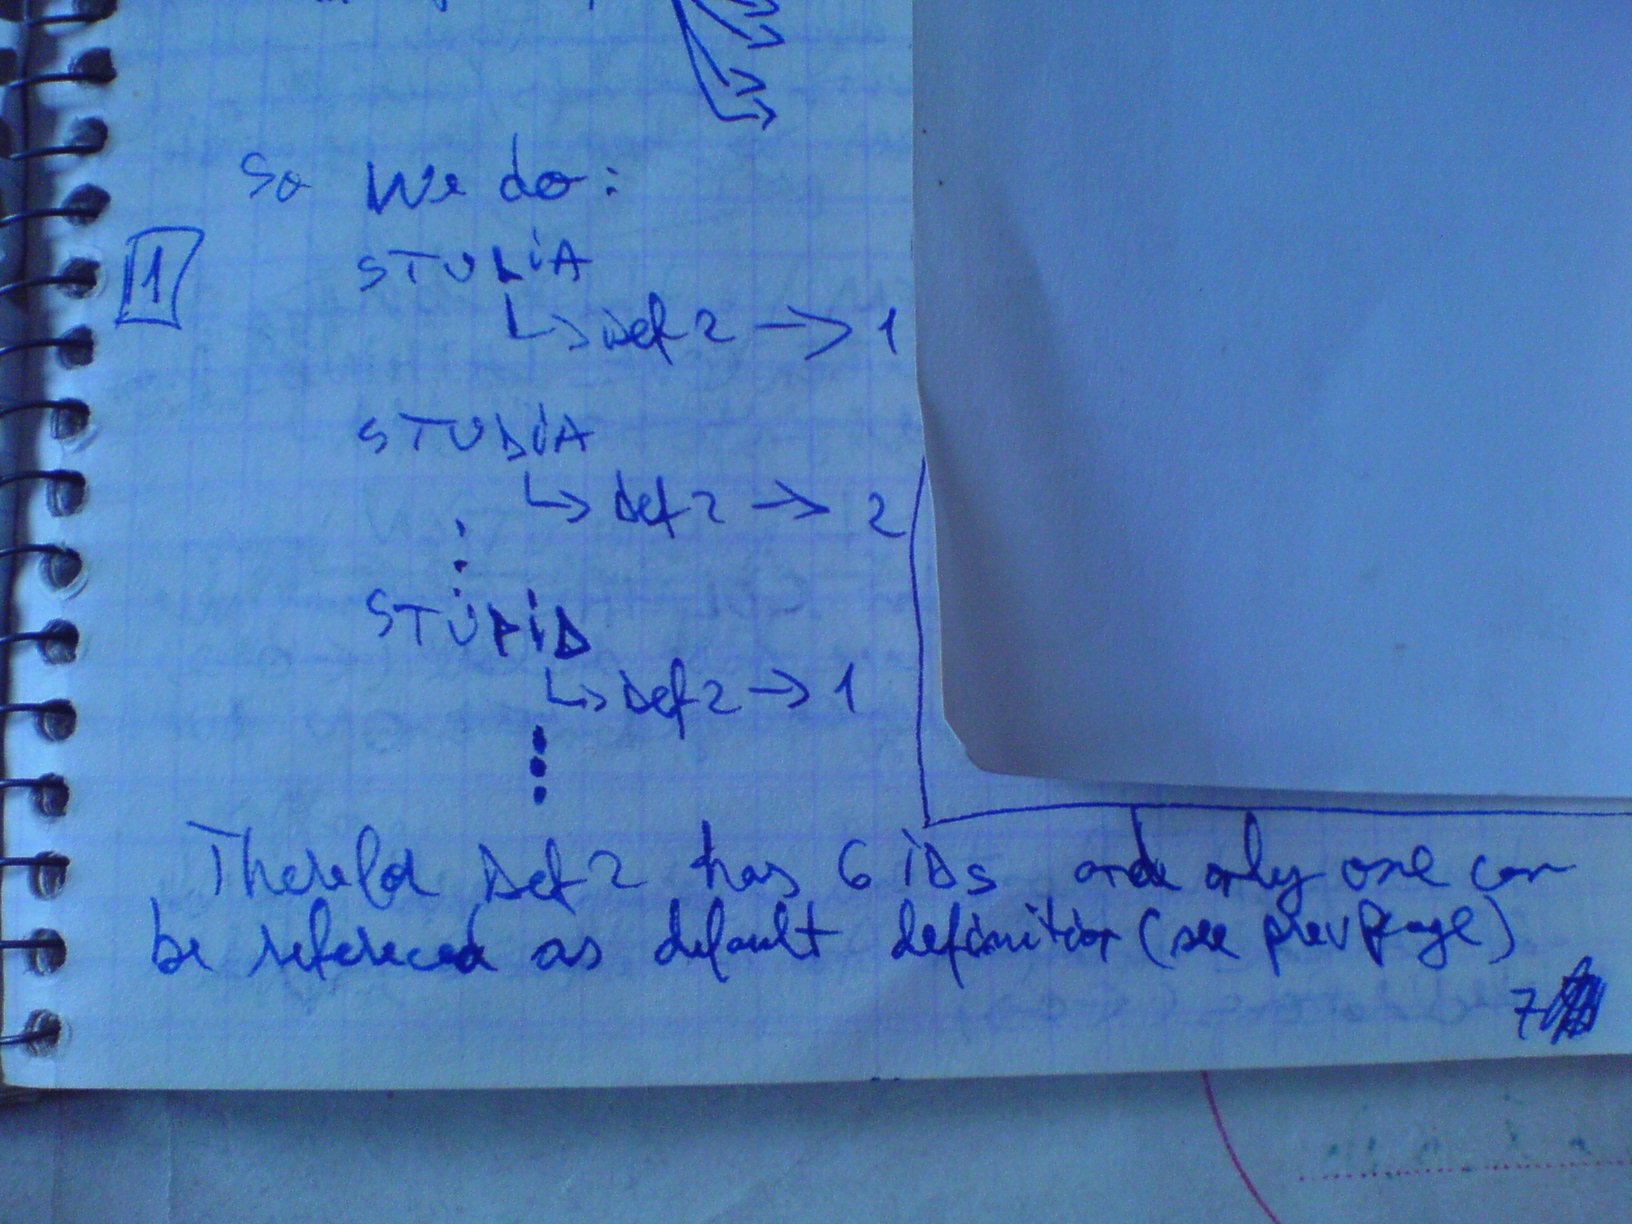 So We do:
1
STULiA
↳ Def 2 → 1
STUDiA
↳ Def 2 → 2
⋮
STUPiD
↳ Def 2 → 1
⋮
Therefor Def 2 has 6 iDs and only one can
be refereced as default definition (see prev page)
7